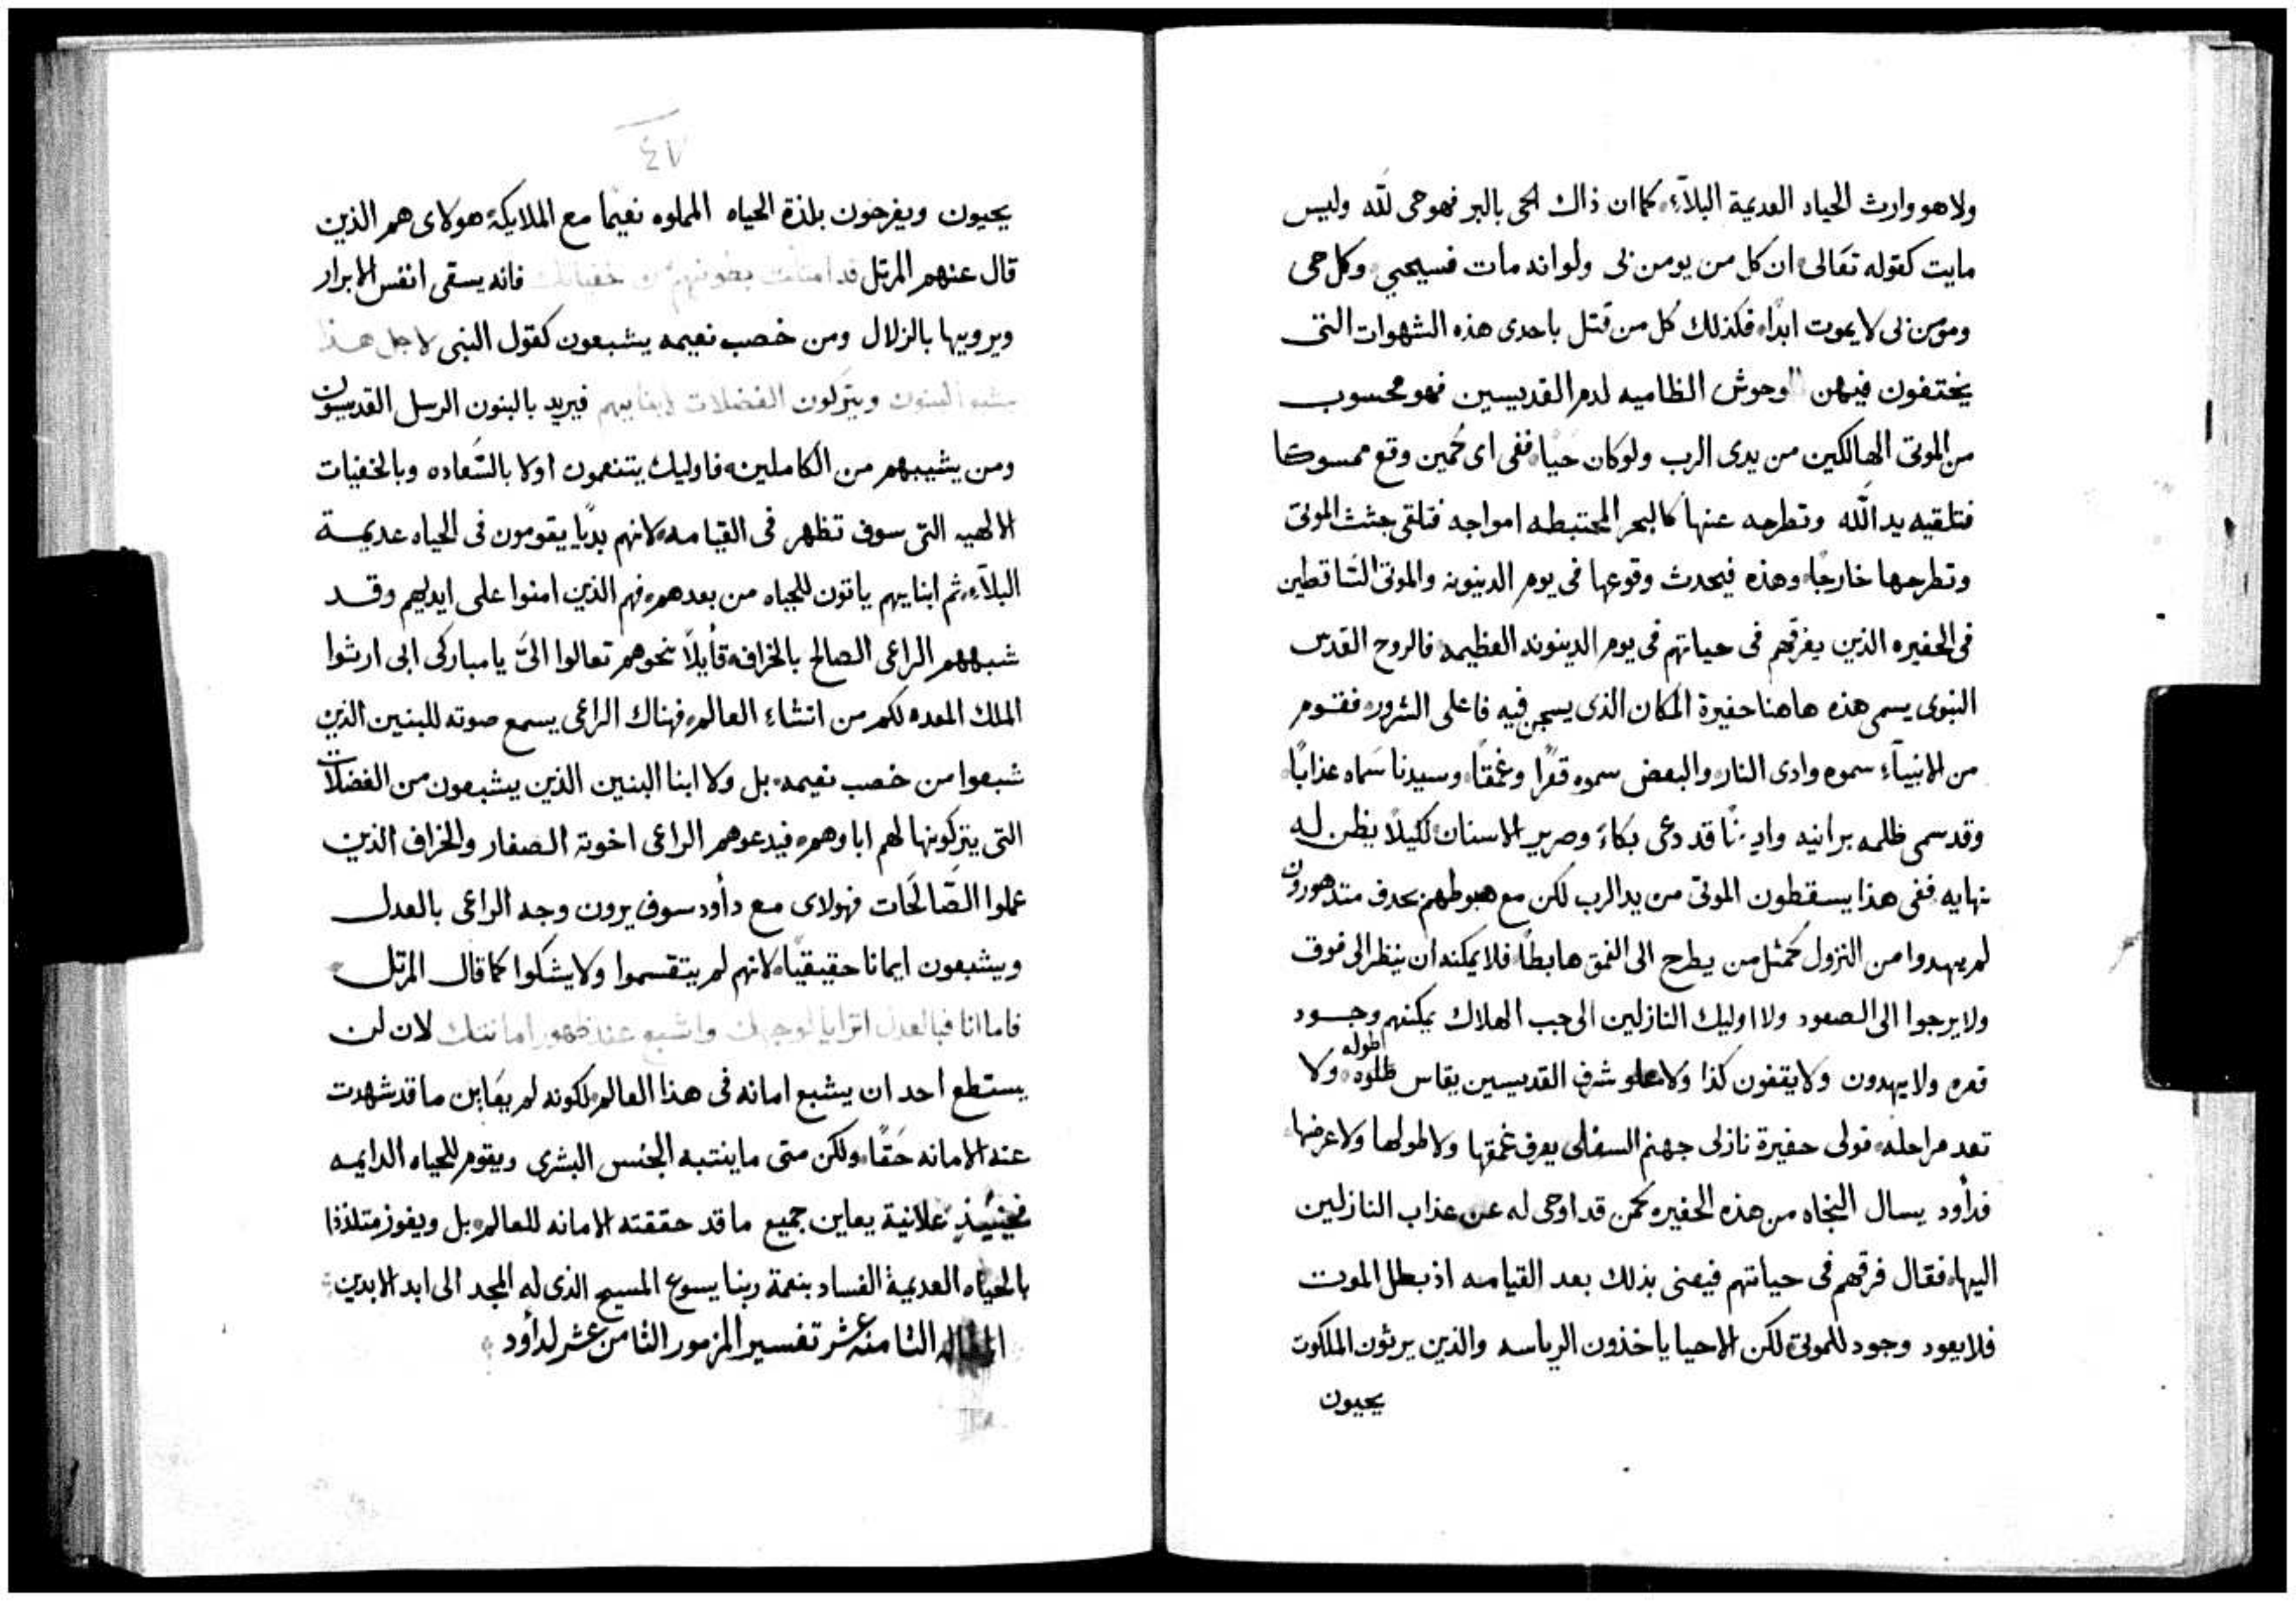 ولا هو وارث الحياه العديمة البلآء كما ان ذاك الحى بالبر فهو حى لله وليس
مايت كقوله تعالى ان كل من يومن بى ولو انه مات فسيحيي وكل حى
ومؤمن بى لا يموت ابدًا فكذلك كل من قتل باحدى هذه الشهوات التى
يختفون فيهن الوحوش الظاميه لدم القديسين فهو محسوب
من الموتى الهالكين من يدى الرب ولو كان حيًا ففى اى وقع ممسوكا
فتلقيه يد الله وتطرحه عنها كالبحر المختبطه امواجه فتلقى جثث الموتى
وتطرحها خارجًا وهذه فيحدث وقوعها فى يوم الدينونه والموتى السَاقطين
فى الحفيره الذين يفرقهم فى حياتهم فى يوم الدينونه العظيمه فالروح القدس
النبوى يسمى هذه هاهنا حفيرة المكان الذى يسجن فيه فاعلى الشرور فقوم
من الانبيآء سموه وادى النار والبعض سموه قعرًا وغمقًا وسيدنا سَماه عذابًا
وقد سمى ظلمه برانيه قد دعى بكاءً وصرير الاسنان لكيلا يظن له
نهايه ففى هذا يسقطون الموتى من يد الرب لكن مع هبوطهم متدهورون
لم يهدوا من النزول كمثل من يطرح الى الغمق هابطًا فلا يمكنه ان ينظر الى فوق
ولا يرجوا الى الصعود ولا اوليك النازلين الى جب الهلاك يمكنهم وجود
قعره ولا يهدون ولا يقفون كذا ولا علو شرف القديسين يقاس طوله ولا
تعد مراحله فولى حفيرة نازلى جهنم السفلى يعرف غمقها ولا طولها ولا عرضها
فدأود يسال النجاه من هذه الحفيره كمن قد اوحى له عن عذاب النازلين
اليها فقال فرقهم فى حياتهم فيعنى بذلك بعد القيامه اذ بطل الموت
فلا يعود وجود للموتى لكن الاحيا ياخذون الرياسه والذين يرثون الملكوت
يحيون
٤٧
يحيون ويفرحون بلذة الحياه المملوه نعيمًا مع الملايكة هولاى هم الذين
قال عنهم المرتل قد امتلت بطونهم من خفياتك فانه يسقى انفس الابرار
ويرويها بالزلال ومن خصب نعيمه يشبعون كقول النبى لاجل هذا
يشبع البنون ويتركون الفضلات لابنايهم فيريد بالبنون الرسل القديسون
ومن يشبههم من الكاملين فاوليك يتنعمون اولا بالسَعاده وبالخفيات
الالهيه التى سوف تظهر فى القيامه لانهم بديًا يقومون فى الحياه عديمة
البلآء ثم ابنايهم ياتون للحياه من بعدهم فهم الذين امنوا على ايديهم وقد
شبههم الراعى الصالح بالخراف قأيلاً نحوهم تعالوا الىَّ يا مباركى ابى ارثوا
الملك المعده لكم من انشاء العالم فهناك الراعى يسمع صوته للبنين الذين
شبعوا من خصب نعيمه بل ولا ابنا البنين الذين يشبعون من الفضلات
التى يتركونها لهم اباوهم فيدعوهم الراعى اخوته الصغار والخراف الذين
عملوا الصَّالحَات فهولاى مع دأود سوف يرون وجه الراعى بالعدل
ويشبعون ايمانا حقيقيًا لانهم لم يتقسموا ولا يشكوا كما قال المرتل
فاما انا فبالعدل اترايا لوجهك واشبع عند ظهور امانتك لان لن
يستطع احد ان يشبع امانه فى هذا العالم لكونه لم يعَاين ما قد شهدت
عنه الامانه حَقًا ولكن متى ما ينتبه الجنس البشرى ويقوم للحياه الدايمه
فحينيئذٍ علانية يعاين جميع ما قد حققته الامانه للعالم بل ويفوز متلذذا
بالحياه العديمة الفساد بنعمة ربنا يسوع المسيح الذى له المجد الى ابد الابدين
المقاله الثامنه عشر تفسير المزمور الثامن عشر لدأود